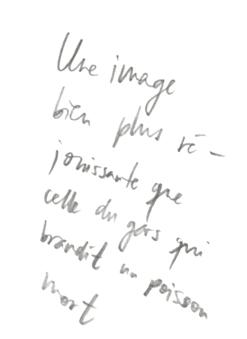 Une image
bien plus ré-
jouissante que
celle du gars qui
brandit un poisson
mort